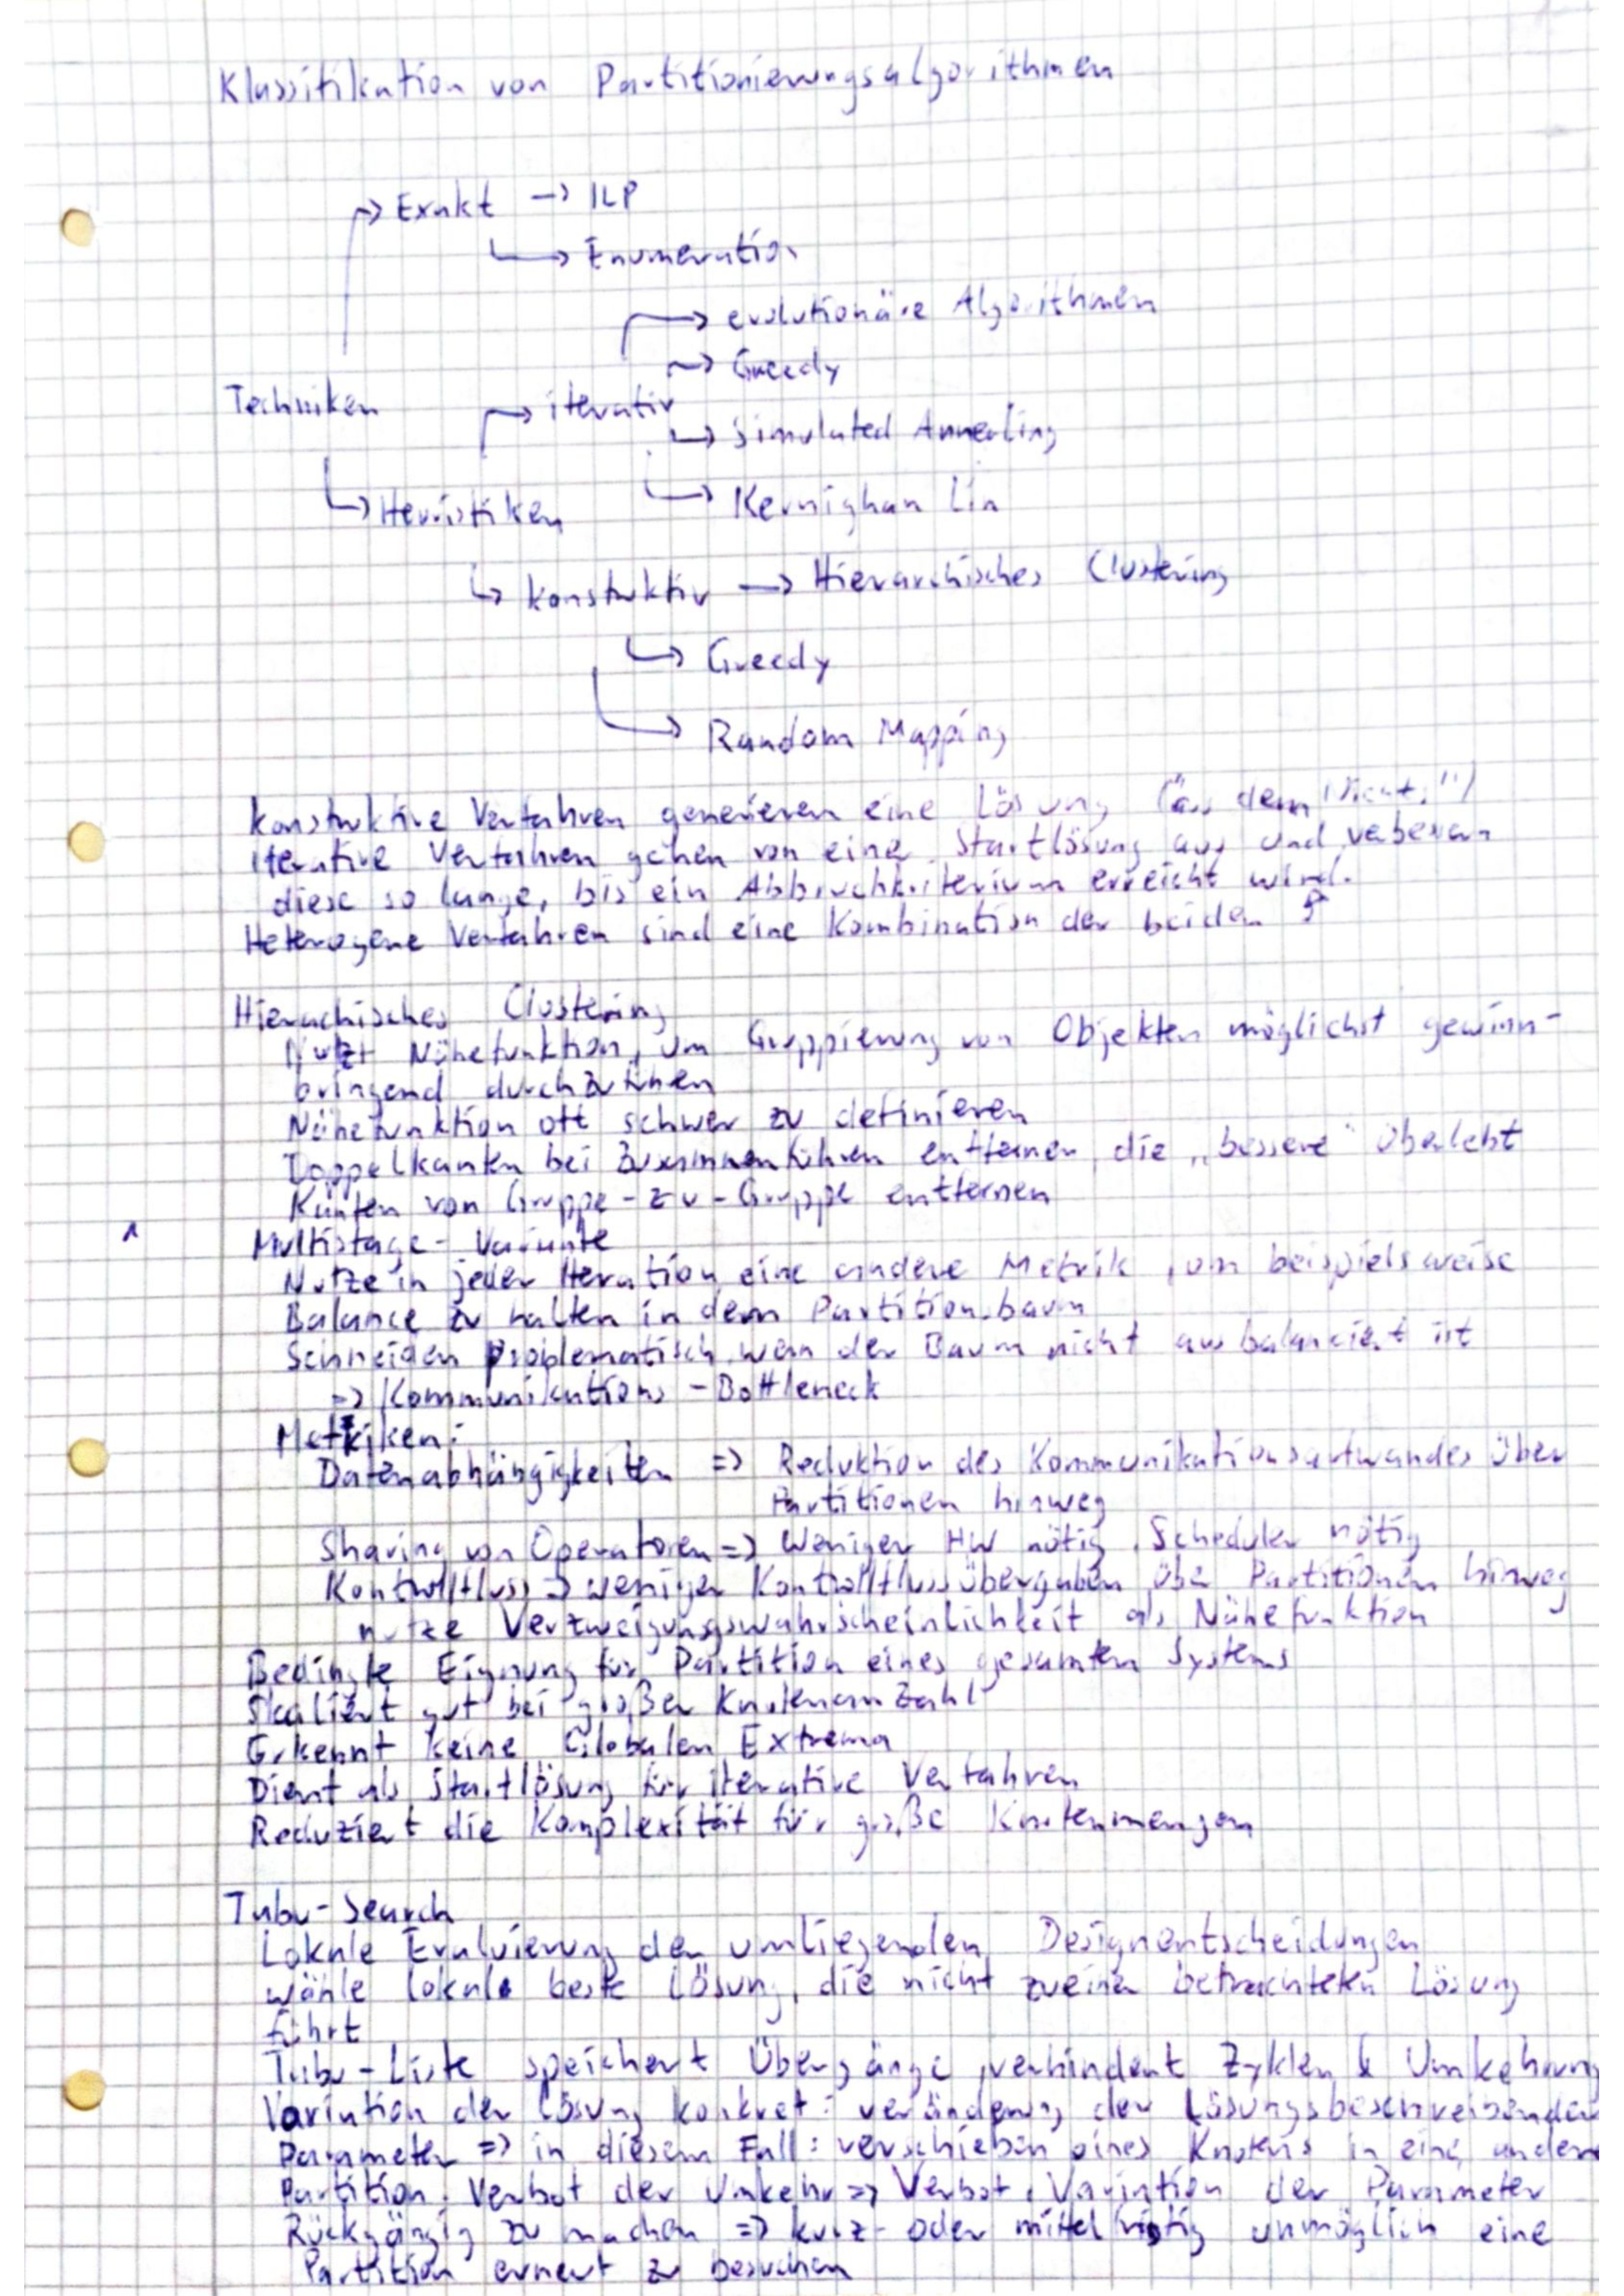 Klassifikation von Partitionierungsalgorithmen
→ Exakt → ILP
→ Enumeration
→ evolutionäre Algorithmen
→ Greedy
Techniken → iterativ
→ Simulated Annealing
→ Heuristiken → Kernighan Lin
→ konstruktiv → Hierarchisches Clustering
→ Greedy
→ Random Mapping
konstruktive Verfahren generieren eine Lösung ("aus dem Nichts")
Iterative Verfahren gehen von einer Startlösung aus und verbessern
diese so lange, bis ein Abbruchkriterium erreicht wird.
Heterogene Verfahren sind eine Kombination der beiden
Hierachisches Clustering
Nutzt Nähefunktion, um Gruppierung von Objekten möglichst gewinn-
bringend durchzuführen
Nähefunktion oft schwer zu definieren
Doppelkanten bei Zusammenführen entfernen, die „bessere" überlebt
Kanten von Gruppe-zu-Gruppe entfernen
Multistage-Variante
Nutze in jeder Iteration eine andere Metrik, um beispielsweise
Balance zu halten in dem Partitionsbaum
Schneiden problematisch, wenn der Baum nicht ausbalanciert ist
=> Kommunikations-Bottleneck
Metriken:
Datenabhängigkeiten => Reduktion des Kommunikationsaufwandes über
Partitionen hinweg
Sharing von Operatoren => Weniger HW nötig, Scheduler nötig
Kontrollfluss => weniger Kontrollflussübergaben über Partitionen hinweg
nutze Verzweigungswahrscheinlichkeit als Nähefunktion
Bedingte Eignung für Partition eines gesamten Systems
Skaliert gut bei großer Knotenanzahl
Erkennt keine Globalen Extrema
Dient als Startlösung für iterative Verfahren
Reduziert die Komplexität für große Knotenmengen
Tabu-Search
Lokale Evaluierung der umliegenden Designentscheidungen
wähle lokale beste Lösung, die nicht zu einer betrachteten Lösung
führt
Tabu-Liste speichert Übergänge, verhindert Zyklen & Umkehrung
Variation der Lösung konkret: veränderung der Lösungsbeschreibenden
Parameter => in diesem Fall: verschieben eines Knotens in eine andere
Partition. Verbot der Umkehr => Verbot, Variation der Parameter
Rückgängig zu machen => kurz- oder mittelfristig unmöglich eine
Partition erneut zu besuchen